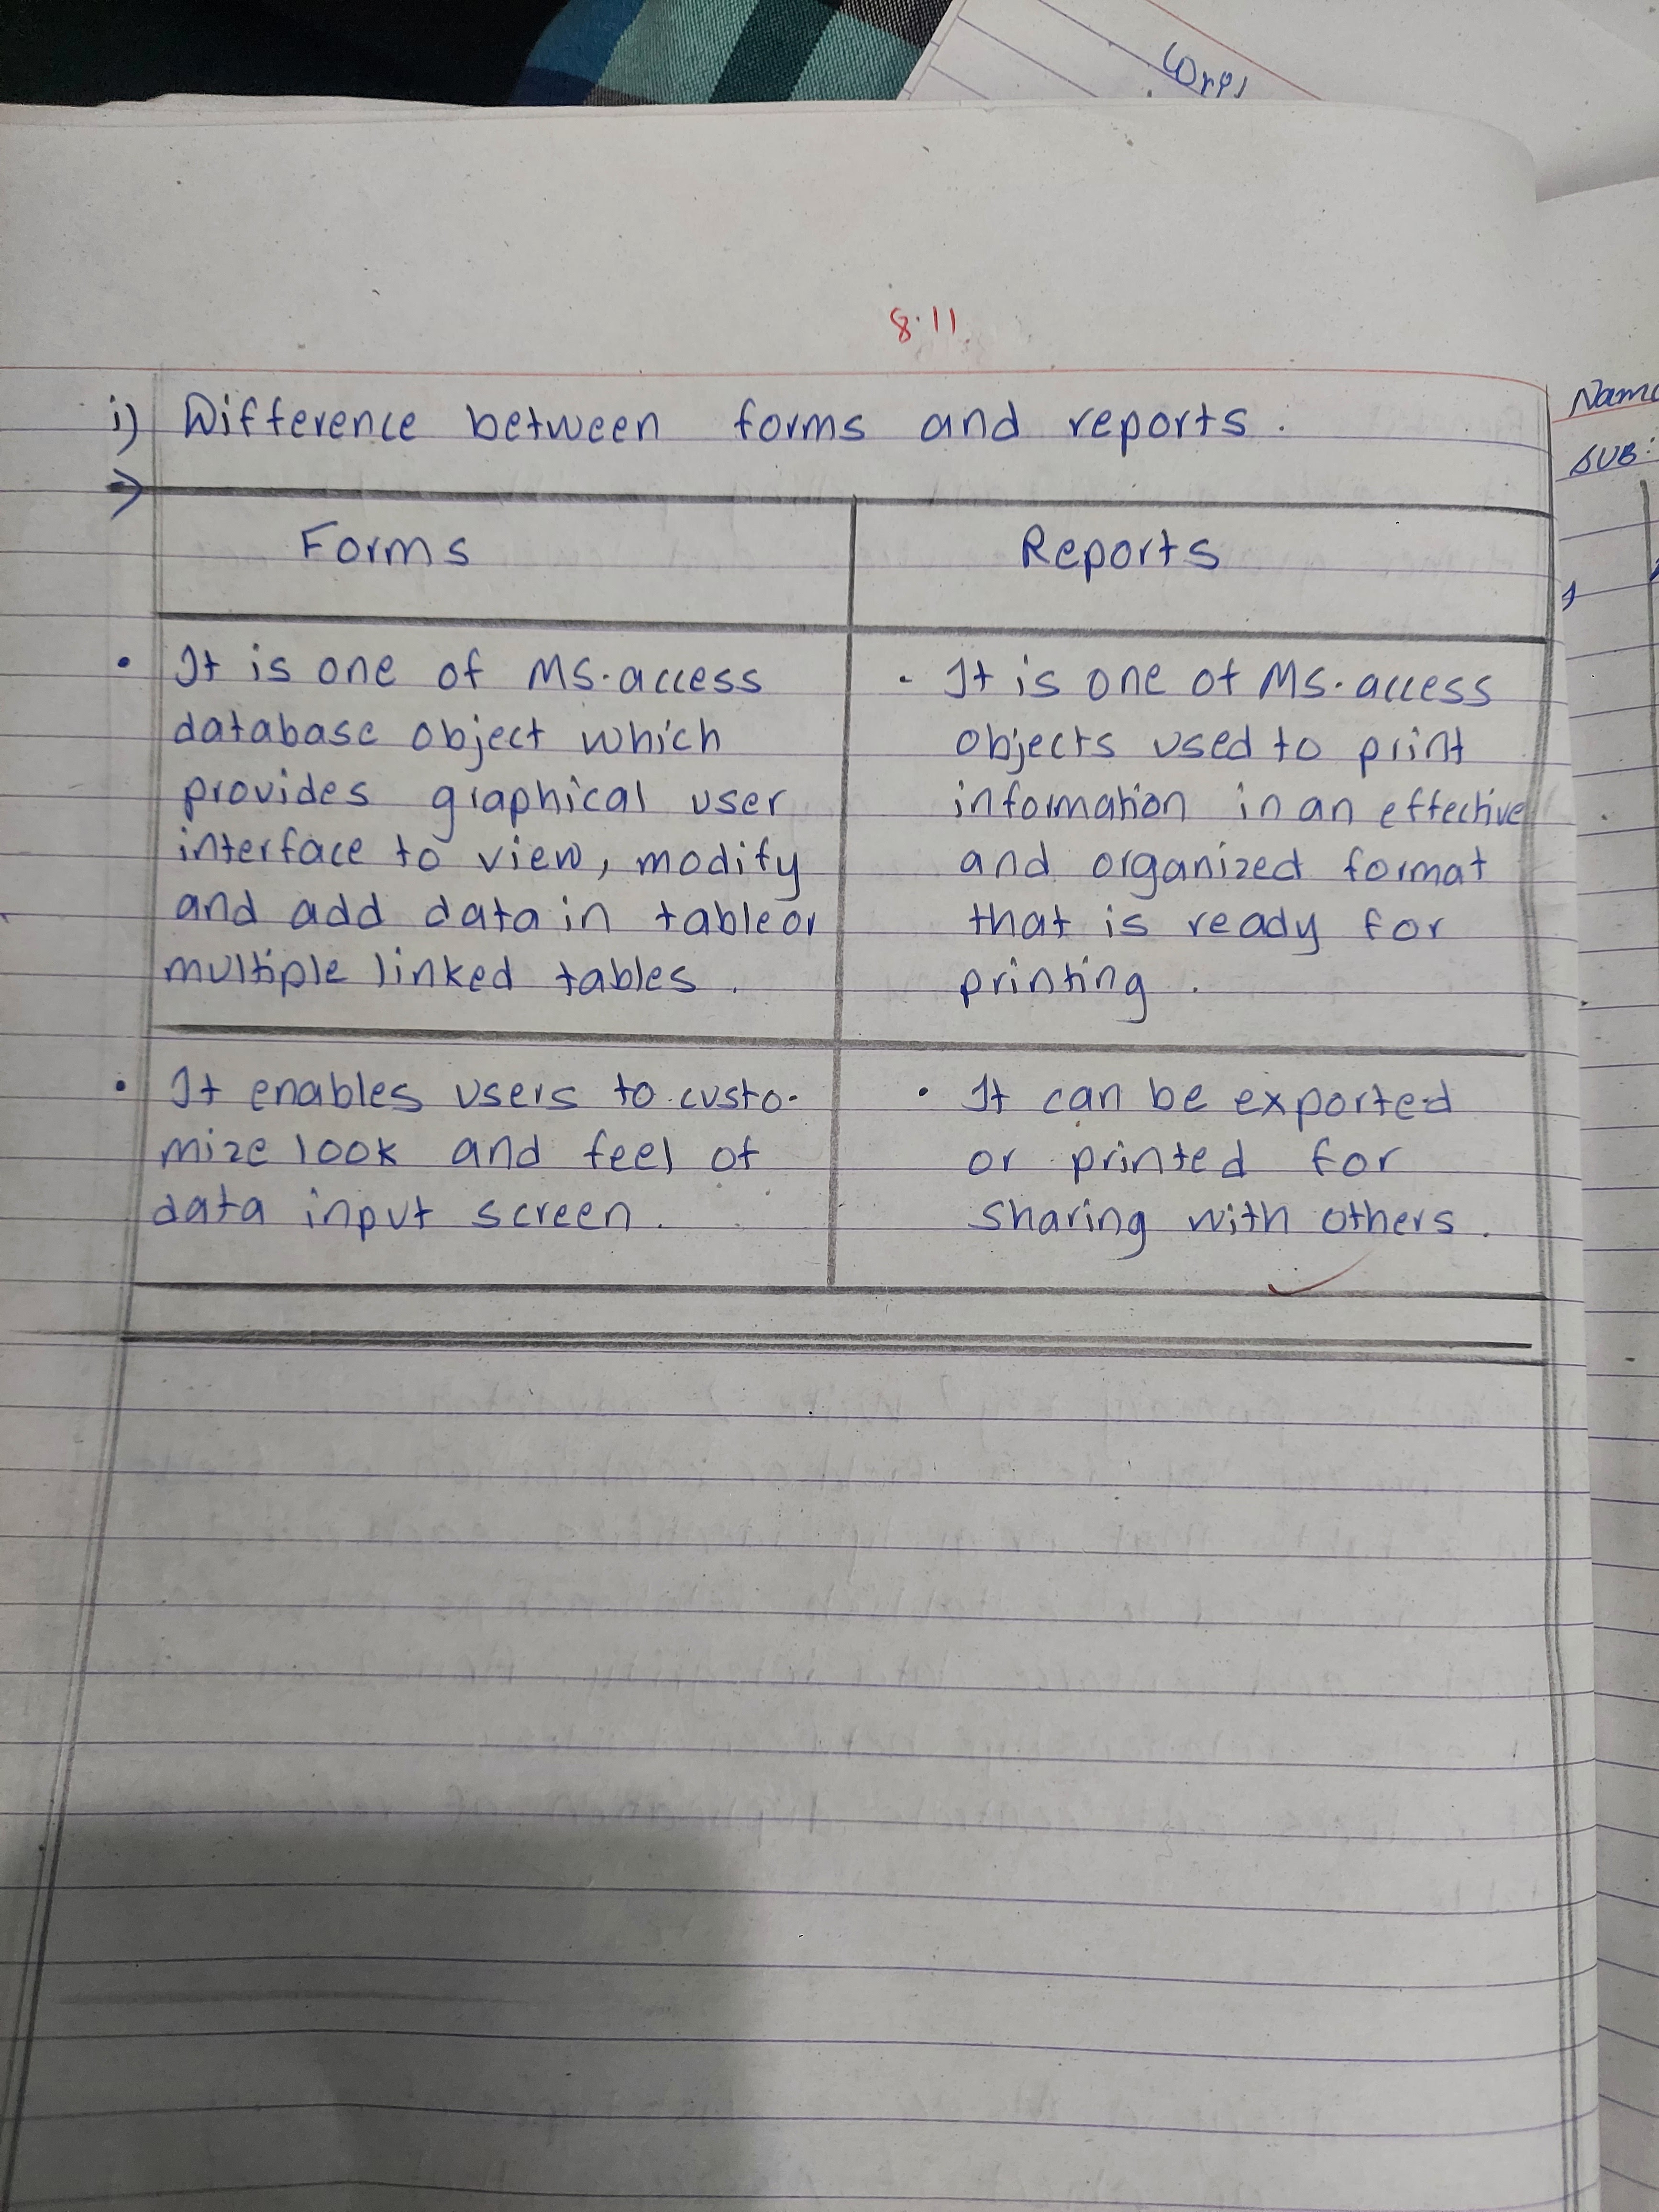 8.11
i) Difference between forms and reports.
Forms
Reports
• It is one of MS.access
database object which
provides graphical user
interface to view, modify
and add data in table or
multiple linked tables.
• It is one of MS.access
objects used to print
information in an effective
and organized format
that is ready for
printing.
• It enables users to custo-
mize look and feel of
data input screen.
• It can be exported
or printed for
sharing with others.
SUB: